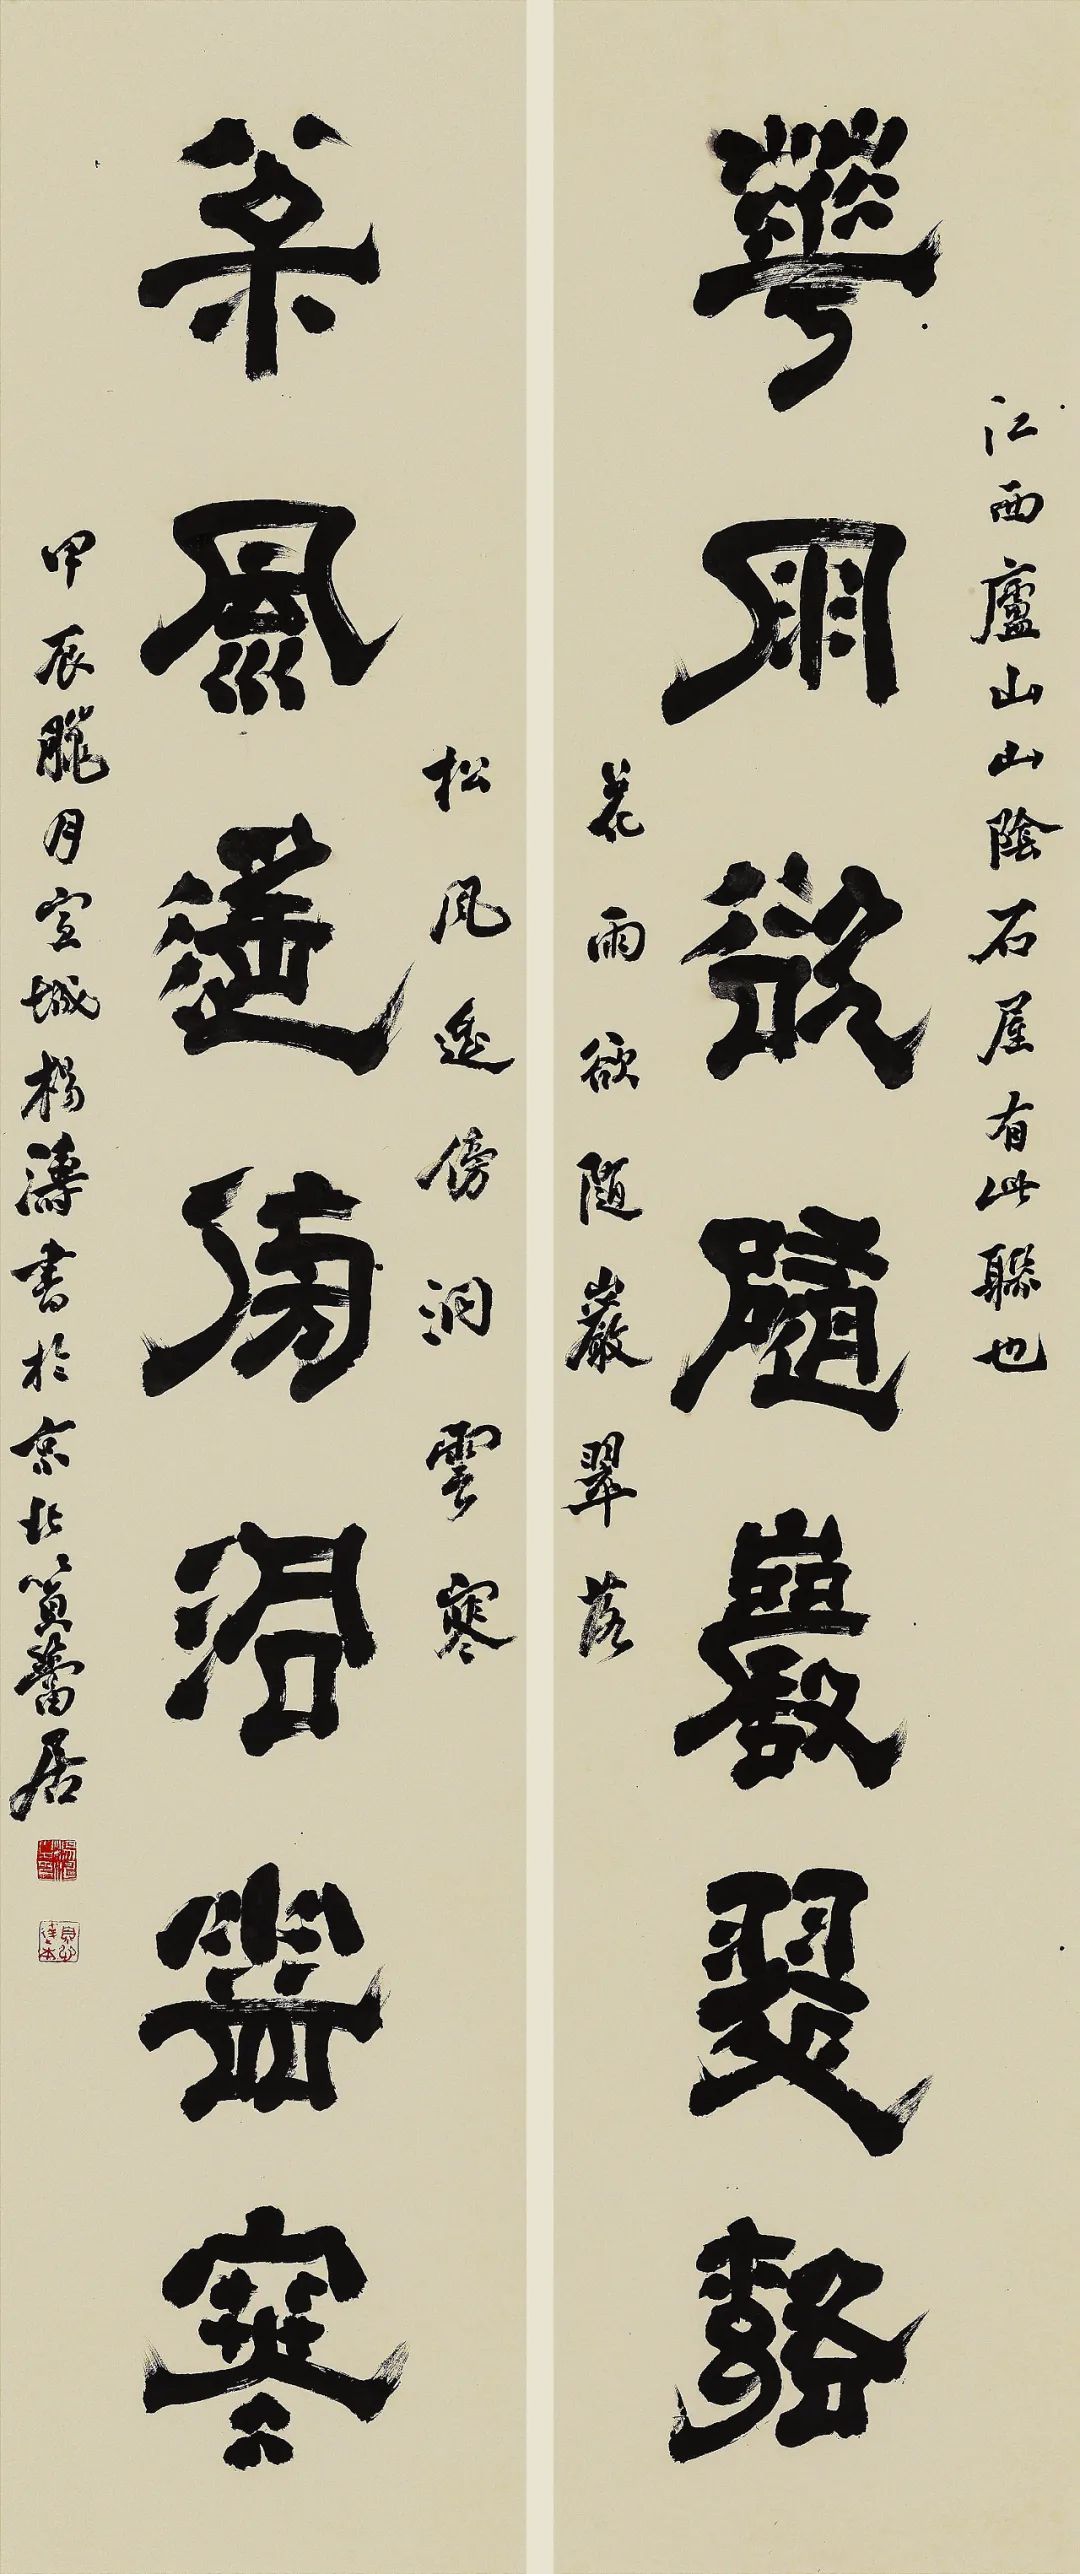 江西廬山山陰石屋有此聯也
華雨欲隨巖翠落
花雨欲随巖翠落
松风遥傍洞雲寒
枩風遥傍洞雲寒
甲辰臘月宣城楊濤書於京北篔簹居